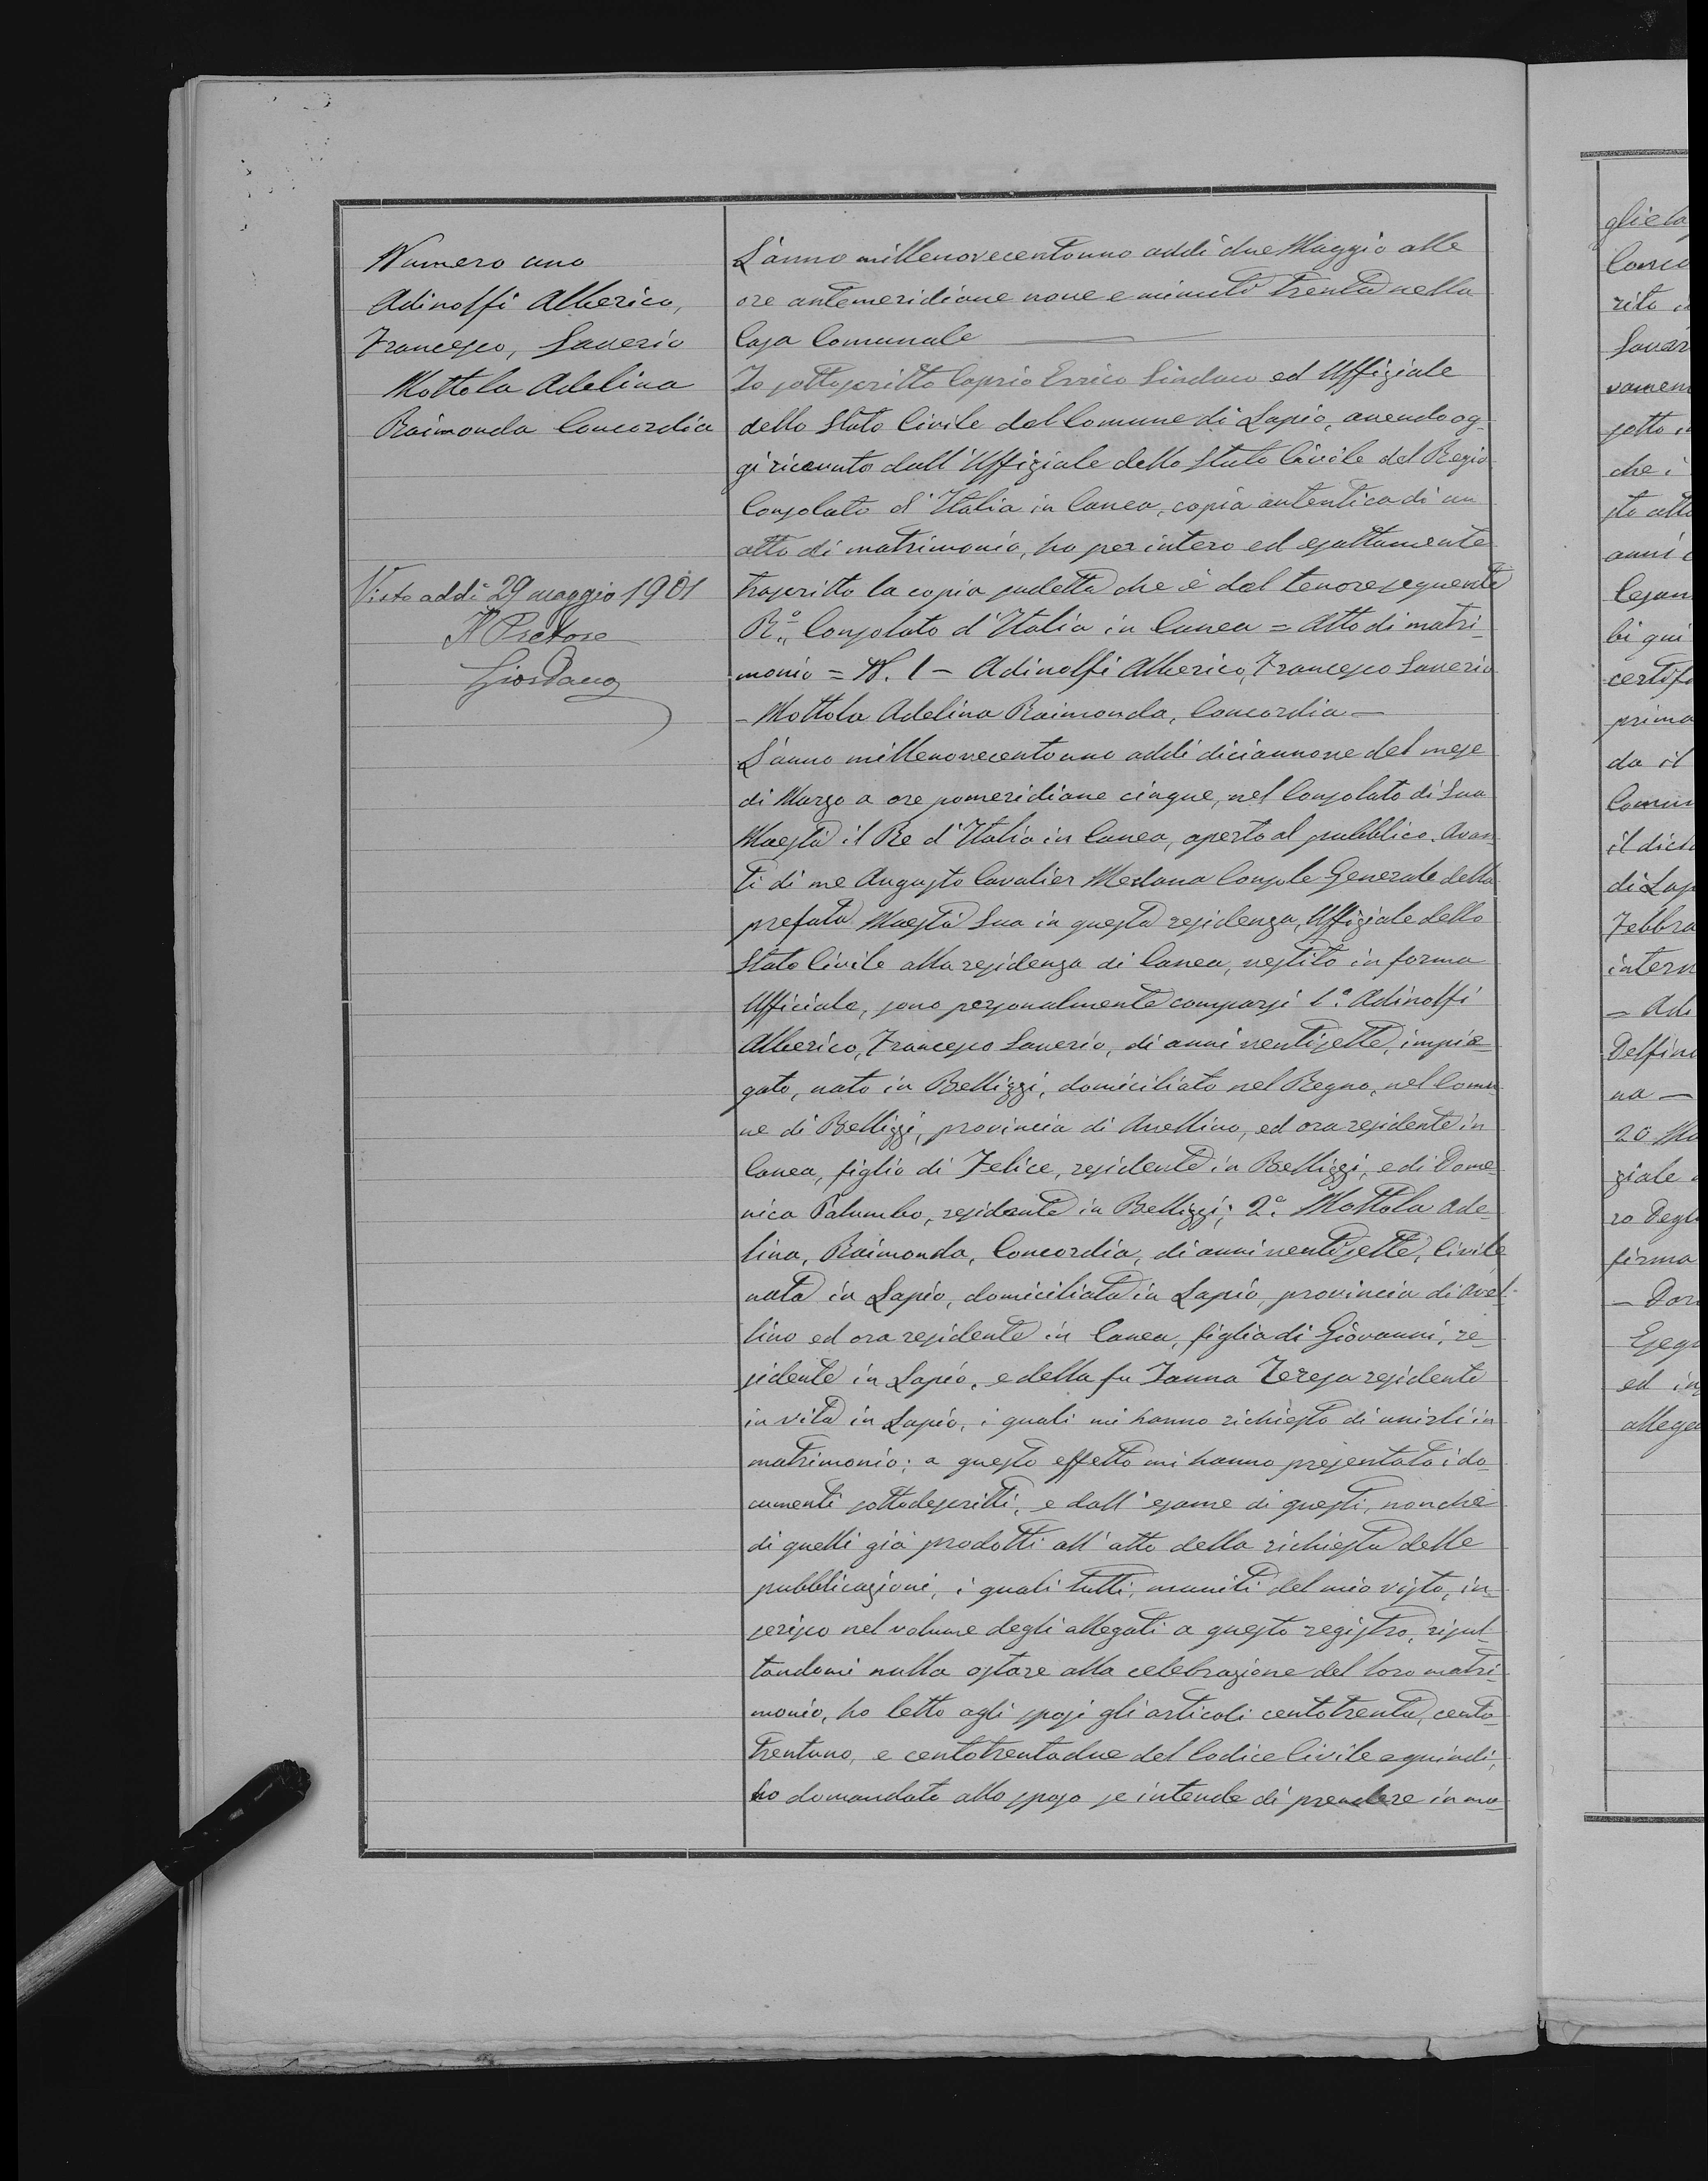 Numero uno
Adinolfi Alberico,
Francesco, Saverio
Mottola Adelina
Raimonda Concordia
Visto addì 29 maggio 1901
Il Pretore
Giordano
L'anno millenovecentouno addì due Maggio alle
ore antemeridiane nove e minuti trenta nella
Casa Comunale
Io sottoscritto Caprio Errico Sindaco ed Uffiziale
dello Stato Civile del Comune di Lapio, avendo og-
gi ricevuto dall'Uffiziale dello Stato Civile del Regio
Consolato d'Italia in Canea, copia autentica di un
atto di matrimonio, ho per intero ed esattamente
trascritto la copia sudetta che è del tenore seguente
R.º Consolato d'Italia in Canea = Atto di matri-
monio = N. 1 - Adinolfi Alberico, Francesco Saverio
- Mottola Adelina Raimonda, Concordia -
L'anno millenovecentouno addì diciannove del mese
di Marzo a ore pomeridiane cinque, nel Consolato di Sua
Maestà il Re d'Italia in Canea, aperto al pubblico. Avan-
ti di me Augusto Cavalier Medana Console Generale della
prefata Maestà Sua in questa residenza, Uffiziale dello
Stato Civile alla residenza di Canea, vestito in forma
Ufficiale, sono personalmente comparsi 1º. Adinolfi
Alberico, Francesco Saverio, di anni ventisette, impie-
gato, nato in Bellizzi, domiciliato nel Regno, nel Comu-
ne di Bellizzi, provincia di Avellino, ed ora residente in
Canea, figlio di Felice, residente in Bellizzi, e di Dome-
nica Palumbo, residente in Bellizzi; 2º. Mottola Ade-
lina, Raimonda, Concordia, di anni ventisette, Civile
nata in Lapio, domiciliata in Lapio, provincia di Avel-
lino ed ora residente in Canea, figlia di Giovanni, re-
sidente in Lapio, e della fu Ianna Teresa residente
in vita in Lapio, i quali mi hanno richiesto di unirli in
matrimonio; a questo effetto mi hanno presentato i do-
cumenti sottodescritti, e dall'esame di questi, nonchè
di quelli già prodotti all'atto della richiesta delle
pubblicazioni, i quali tutti, muniti del mio visto, in-
serisco nel volume degli allegati a questo registro, risul-
tandomi nulla ostare alla celebrazione del loro matri-
monio, ho letto agli sposi gli articoli centotrenta, cento
trentuno, e centotrentadue del Codice Civile e quindi,
ho domandato allo sposo se intende di prendere in ma-
glie la
Conco
rito
Saver
vamen
sotto
che i
sto atto
anni
Cesar
bi qui
certifi
prima
da il
Comun
il dici
di Lap
Febbra
intern
= Adi
Delfin
na -
20 Ma
ziale
ro degl
firma
Esegu
ed in
allega